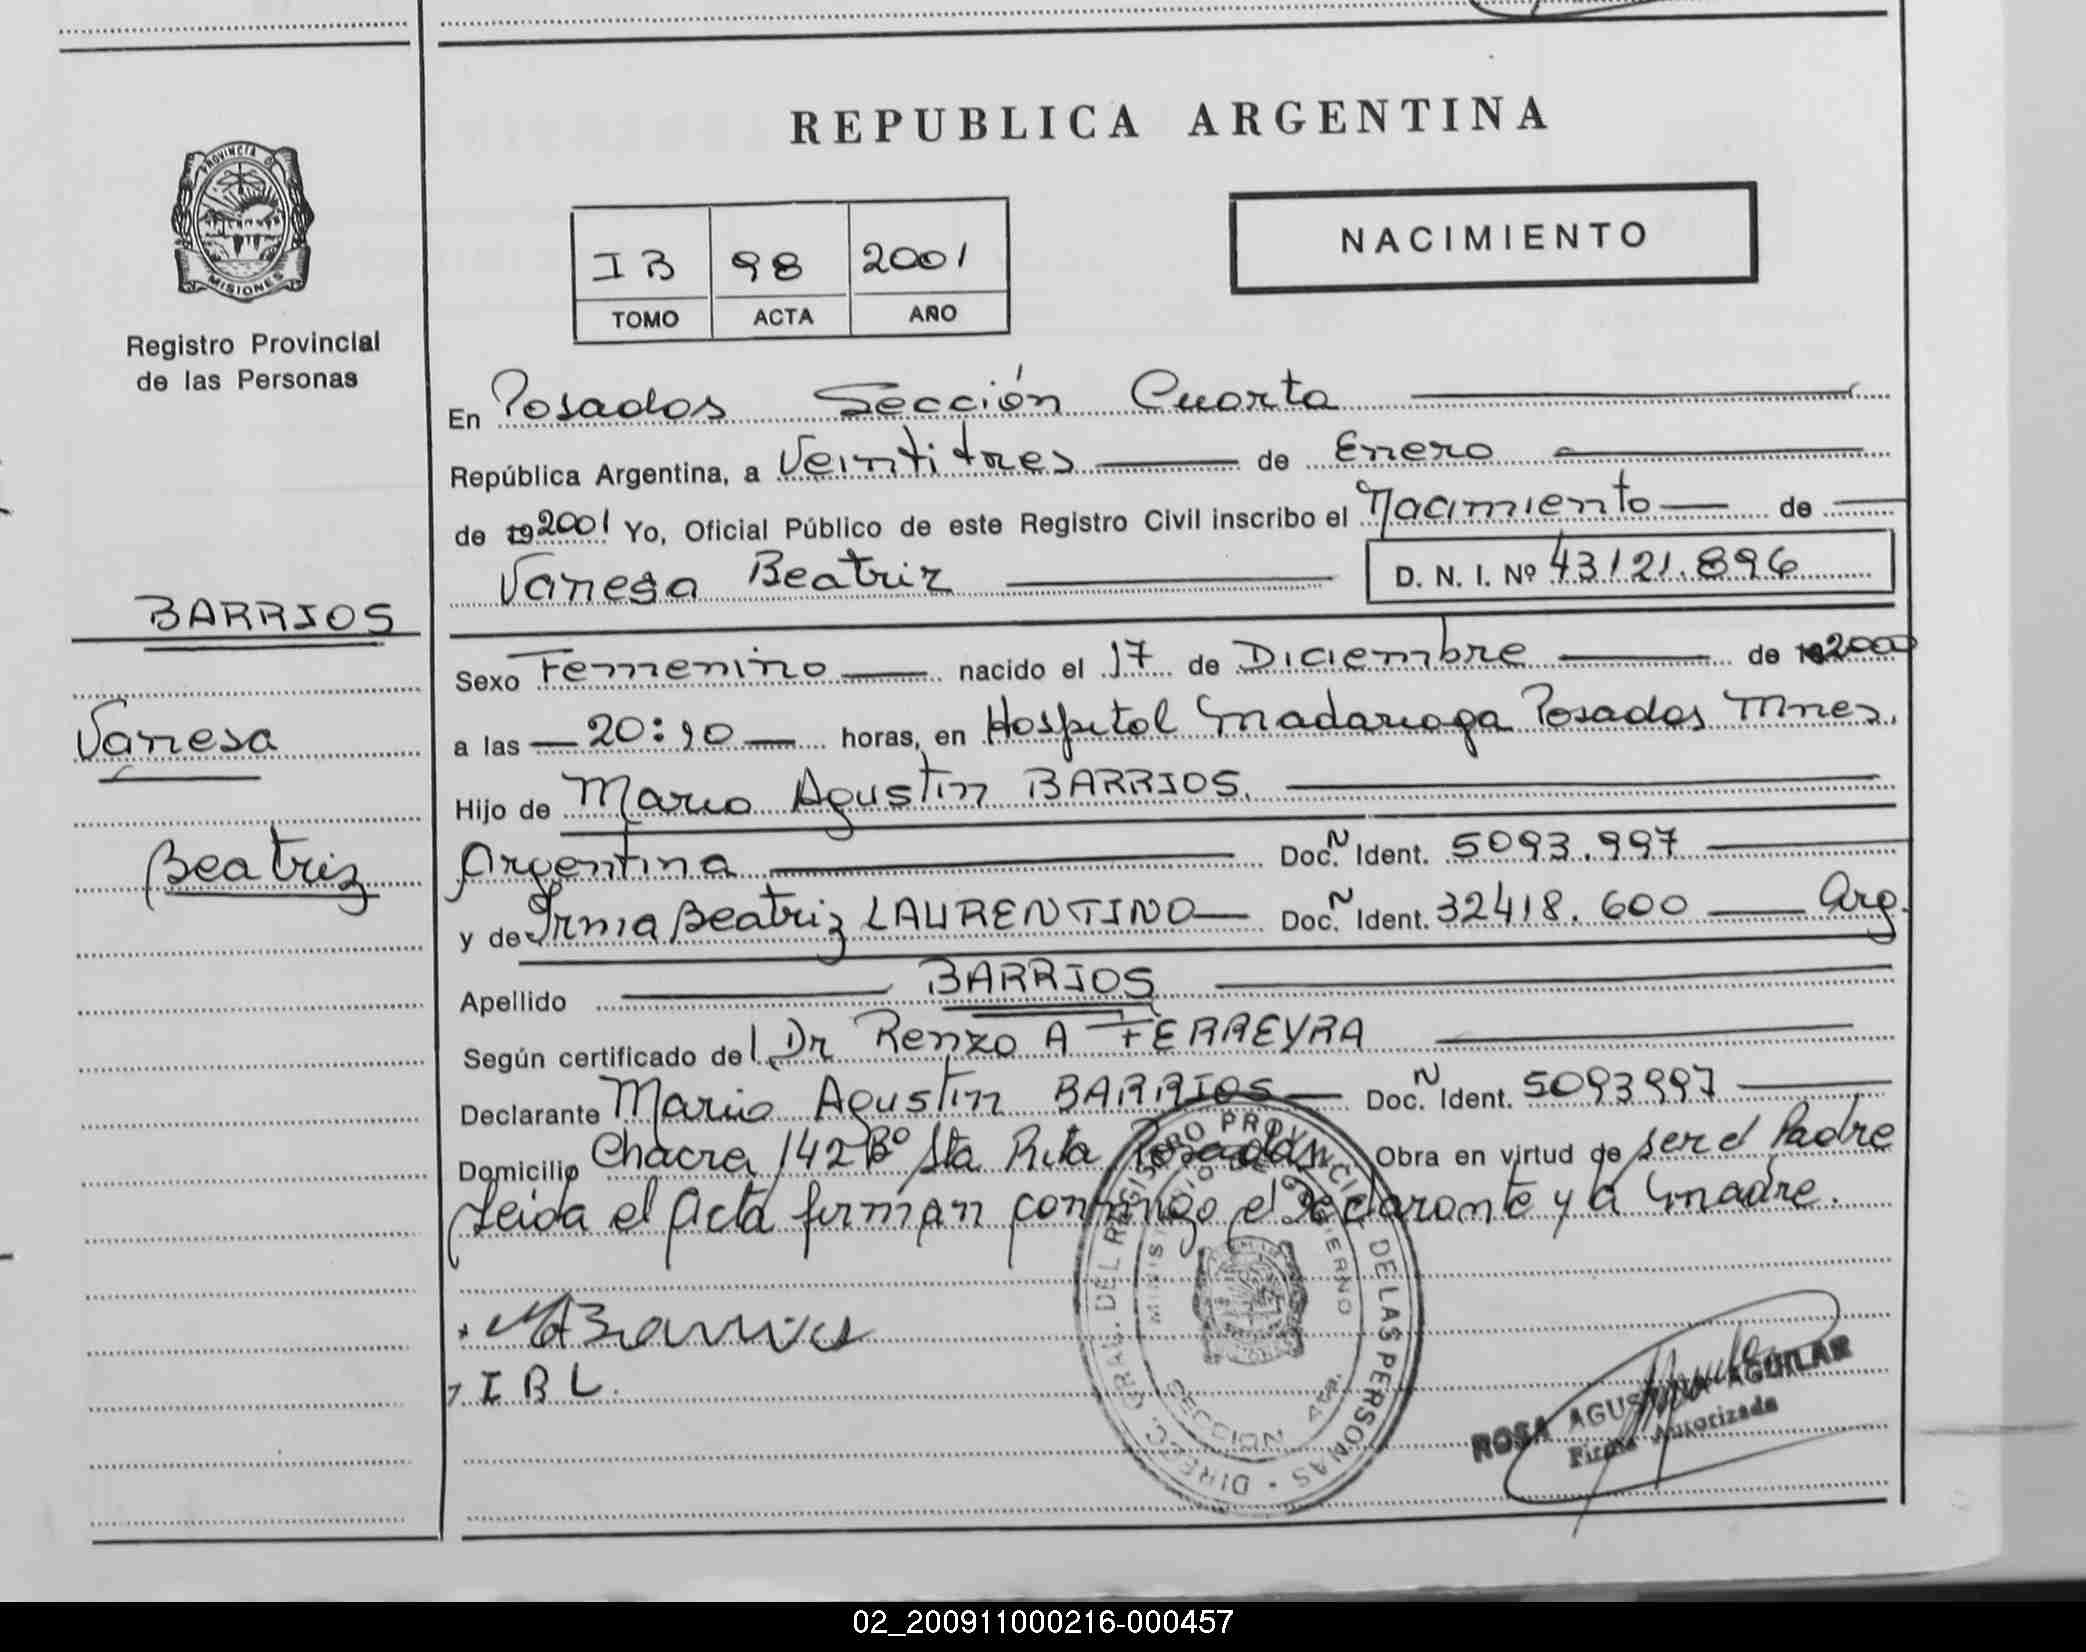 PROVINCIA DE
MISIONES
Registro Provincial
de las Personas
BARRIOS
Vanesa
Beatriz
REPUBLICA ARGENTINA
IB 98 2001
TOMO ACTA AÑO
NACIMIENTO
En Posadas Sección Cuarta
República Argentina, a Veintitres de Enero
de 19 2001 Yo, Oficial Público de este Registro Civil inscribo el Nacimiento de
Vanesa Beatriz D. N. I. Nº 43121.896
Sexo Femenino nacido el 17 de Diciembre de 2000
a las 20:10 horas, en Hospital Madariaga Posadas Mnes.
Hijo de Mario Agustin BARRIOS.
Argentina Doc. N Ident. 5093.997
y de Irma Beatriz LAURENTINO Doc. N Ident. 32418.600 Arg.
Apellido BARRIOS
Según certificado del Dr Renzo A FERREYRA
Declarante Mario Agustin BARRIOS Doc. N Ident. 5093997
Domicilio Chacra 142 Bº Sta Rita Posadas Obra en virtud de ser el Padre
Leida el Acta firman conmigo el declarante y la madre.
I B L.
DIREC. GRAL. DEL REGISTRO PROVINCIAL DE LAS PERSONAS
MINISTERIO DE GOBIERNO
SECCION 4ta.
ROSA AGUSTINA AGUILAR
Firma Autorizada
02_200911000216-000457